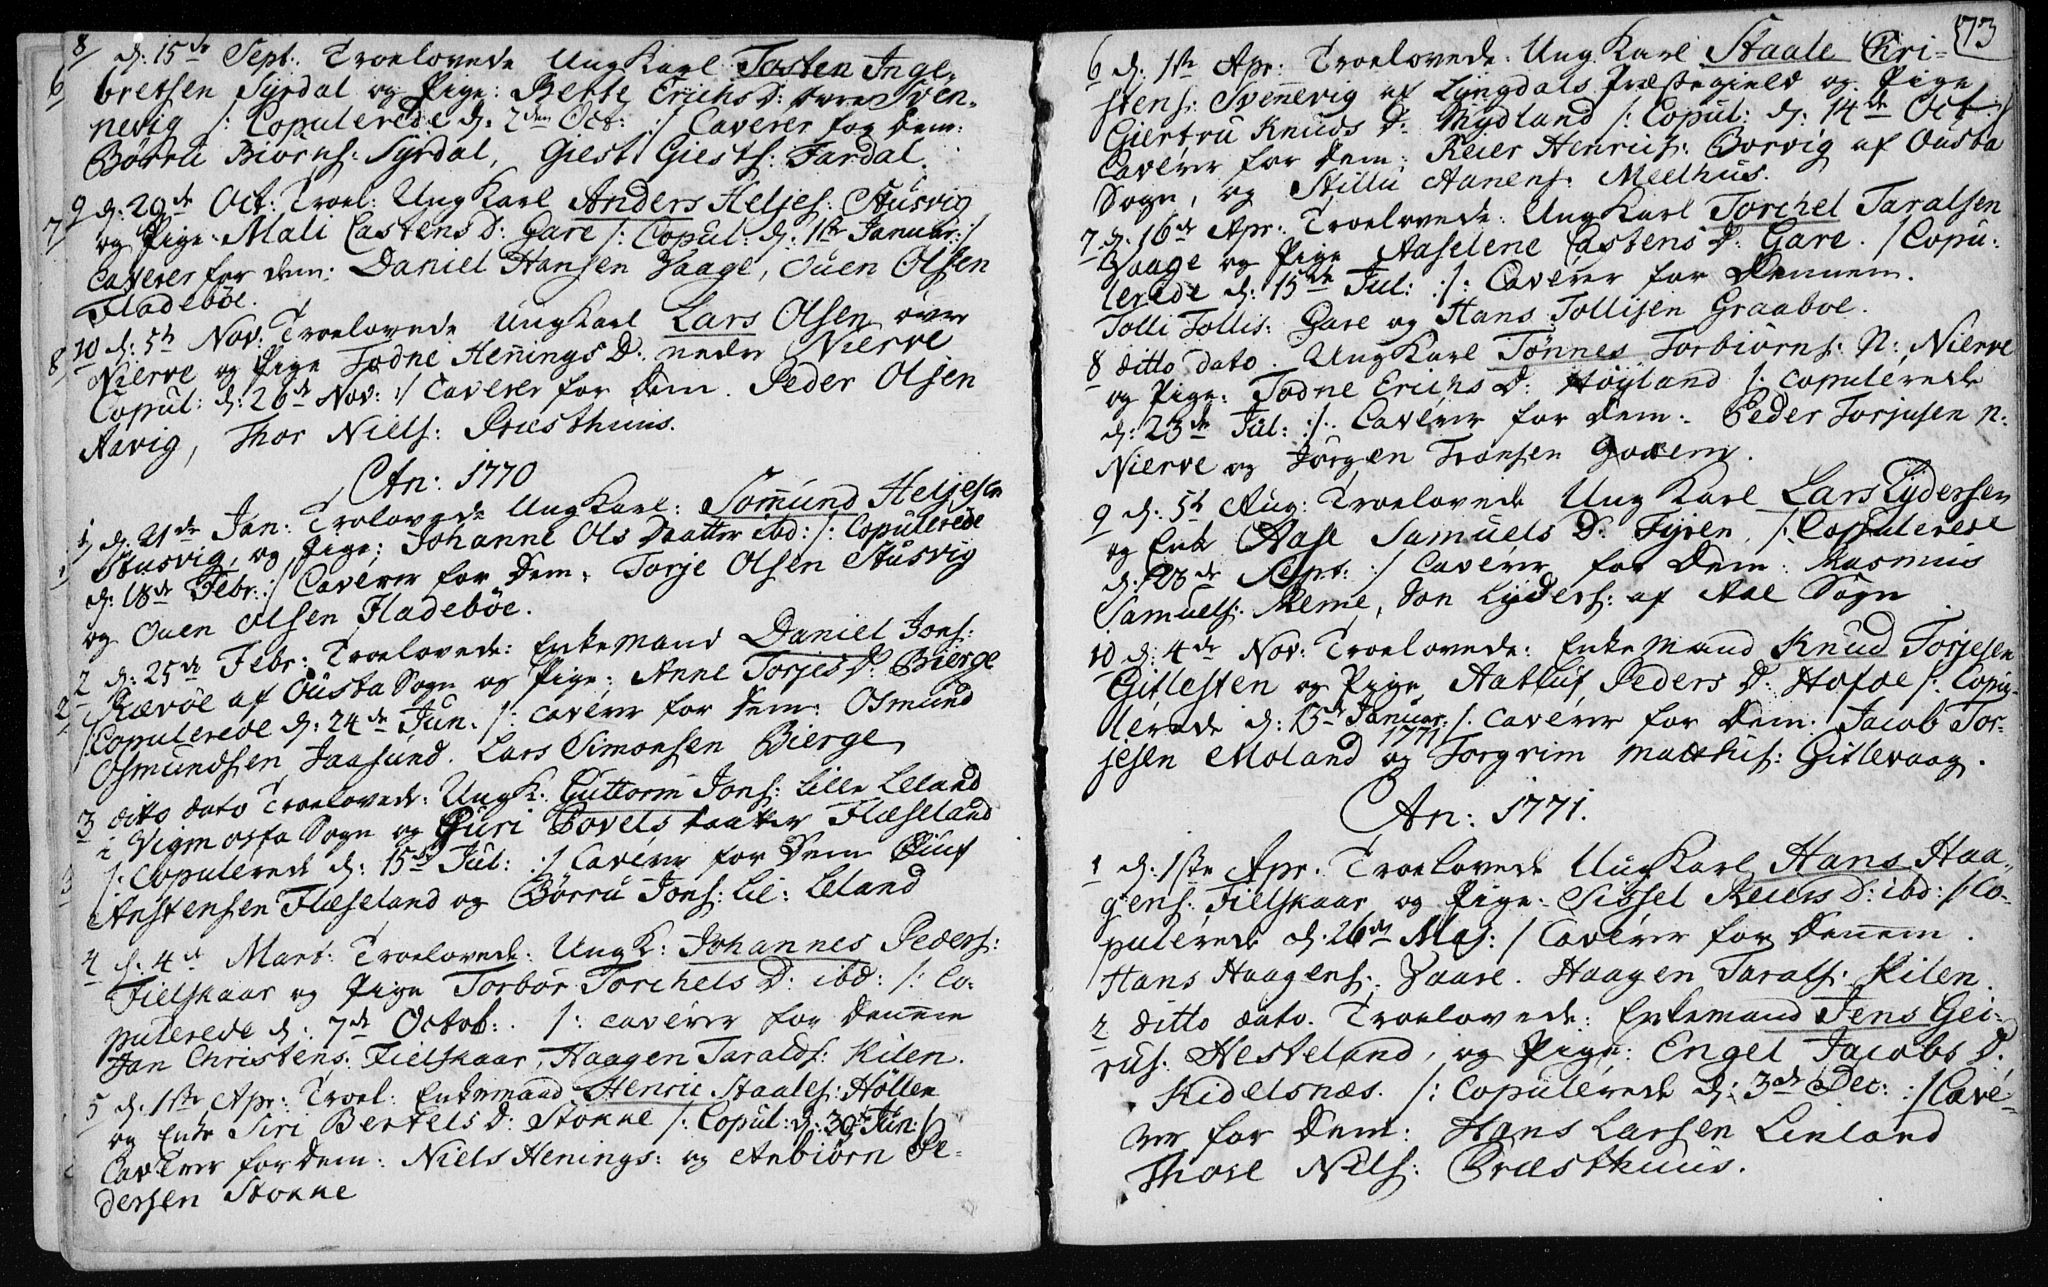 8 d: 15de Sept. Troelovede UngKarl Tosten Inge-
6 bretsen Syrdal og Pige: Berte Erichs D: Sven-
nevig /: Copulerede d: 2den Oct: :/ Caverer for Dem:
Børru Biørns: Syrdal, Giest Giests: Fardal.
9 d: 29de Oct: Troel: UngKarl Anders Heljes: Stusvig
7 og Pige. Mali Castens D: Gare /: Copul: d: 1ste Januar: /
Caverer for dem: Daniel Hansen Vaage, Ouen Olsen
Fladebøe.
10 d: 5te Nov: Troelovede UngKarl Lars Olsen over
8 Nierve og Pige Todne Hennings D: neder Nierve
Copul: d: 26de Nov: :/ Caverer for Dem. Peder Olsen
Aavig, Thor Niels: Præsthuus.
An: 1770
1 d: 21de Jan: Trolovede UngKarl: Somund Heljesen
Stusvig, og Pige: Johanne Ols Daatter ibd: /: Copulerede
d: 18de Febr: :/ Caverer for Dem. Torje Olsen Stusvig
og Ouen Olsen Fladebøe.
2 d: 25de Febr: Troelovede: EnkeMand Daniel Jons:
Rævøe af Ousta Sogn og Pige: Anne Torjes D: Bierge
2 /: Copulerede d: 24de Jun. /: caverer for Dem: Osmund
Osmundsen Jaasund. Lars Simonsen Bierge
3 ditto dato Troelovede: UngK. Guttorm Jons: Lille Leland
i Vigmosta Sogn og Guri Povels Daatter Flæseland
3 /: Copulerede d: 15de Jul: :/ Caverer for Dem
Anstensen Flæseland og Børru Jons: Lil: Leland
4 d: 4de Mart: Troelovede: UngK: Johannes Peders:
Fielskaar og Pige Torbor Torchels D: ibd: /: Co-
pulerede d: 7de Octob: . /: caverer for Dennem
Jan Christens: Fielskaar, Haagen Taralds: Kilen.
5 d: 1ste Apr: Troel: Enkemand Henric Staales: Høllen
og Enke Siri Bertels D: Stokke /: Copul: d: 30te Jun: /
Caverer for Dem: Niels Henings: og Anbiørn Pe-
dersen Stokke
73
6 d: 1ste Apr: Troelovede: UngKarl Staale Chri-
stens: Svennevig af Lyngdals Præstegield og Pige
Giertru Knuds D: Mydland /: Copul: d: 14de Oct :/
Caverer for Dem: Reier Henrichs: Borvig af Ousta
Sogn, og Stillu Aanens: Meelhus.
7 d: 16de Apr: Troelovede: UngKarl Torchel Taralsen
Vaage og Pige Aaselene Castens D: Gare. /: Copu-
lerede d: 15de Jul: :/: Caverer for Dennem.
Tolli Tollis: Gare og Hans Tollisen Graaboe.
8 ditto dato. UngKarl Tønnes Torbiørns: N: Nierve
og Pige: Todne Erichs D: Høyland /: Copulerede
d: 23de Jul: :/. Caverer for Dem: Peder Torjusen N:
Nierve og Jørgen Fransen
9 d: 5te Aug: Troelovede UngKarl Lars Lydersen
og Enke Aase Samuels D: Fyren, /: Copulerede
d: Sept: :/ Caverer for Dem: Rasmus
Samuels: Reme, Jon Lyders: af Aae Sogn.
10 d: 4de Nov: Troelovede: Enkemand Knud Torjesen
Gitlesten og Pige, Aatlug Peders D: Hofoe /: Copu-
lerede d: 13de Januar: /. Caverer for Dem: Jacob Tor-
1771
jesen Moland og Torgrim Matthis: Gitlevaag.
An: 1771.
1 d: 1ste Apr. Troelovede UngKarl Hans Haa-
gens: Fielskaar og Pige. Sissel Reiers D: ibd: /: Co-
pulerede d: 26de Maj: / Caverer for Dennem.
Hans Haagens: Vaare. Haagen Tarals: Kilen.
2 ditto dato. Troelovede: Enkemand Jens Gei-
rus: Hesteland, og Pige: Engel Jacobs D:
Kidelsnæs. /: Copulerede d: 3de Dec: :/ Cave-
rer for Dem: Hans Larsen Linland
Thore Niels: Præsthuus.